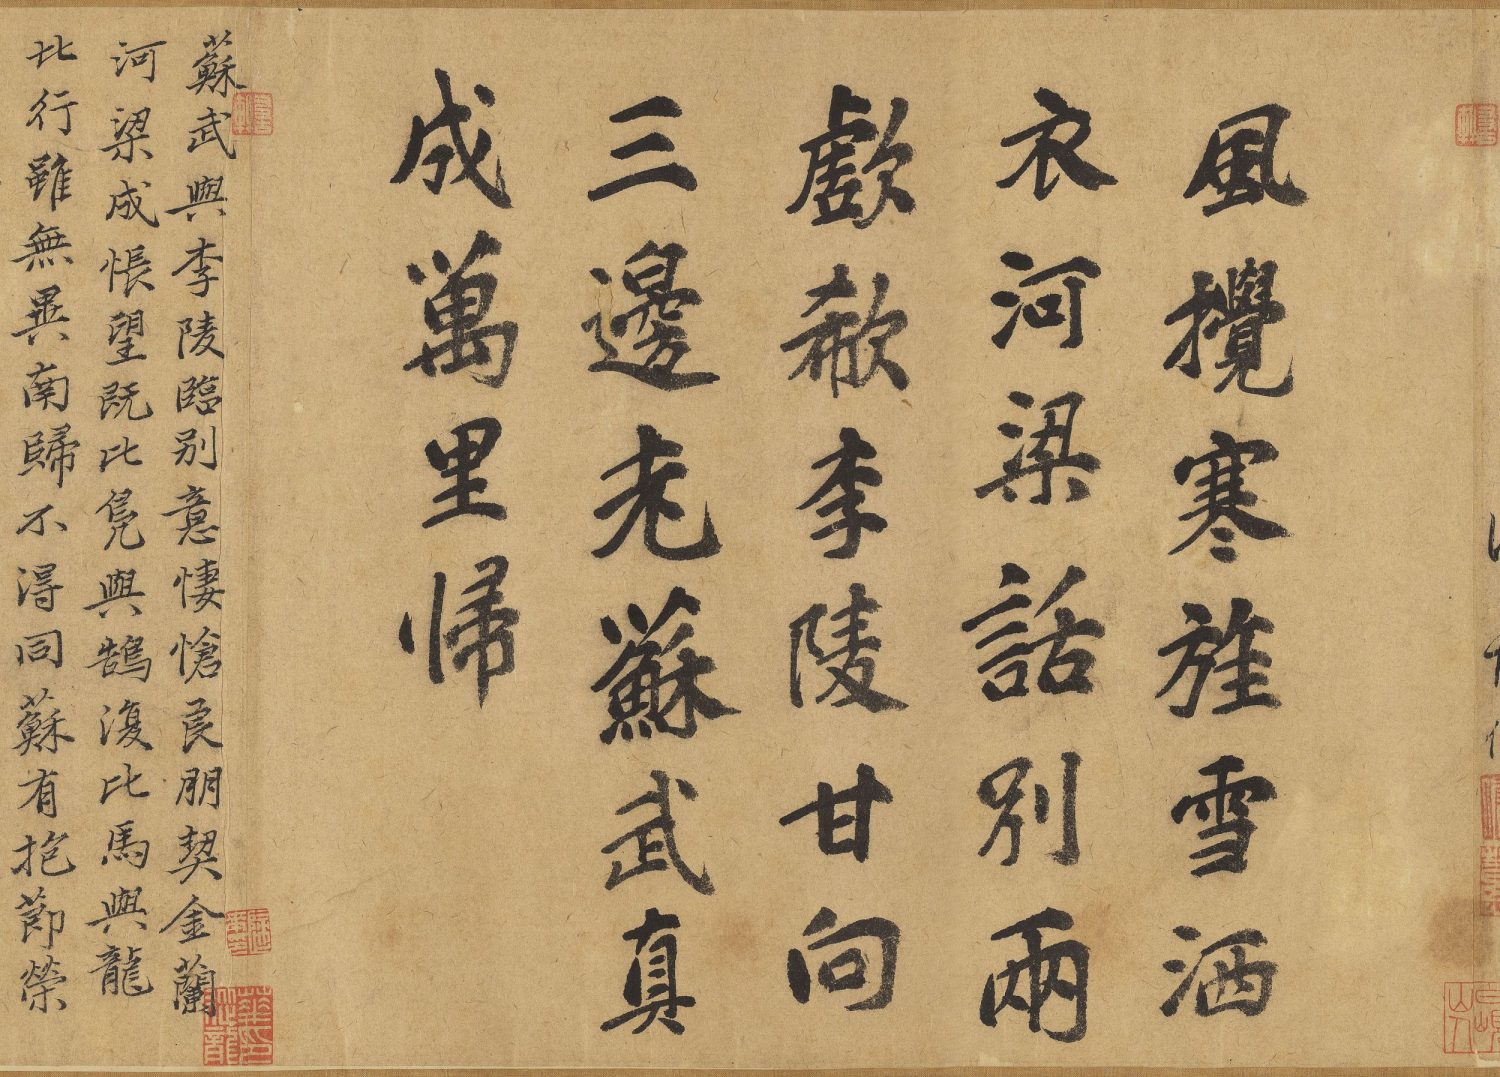 風攪寒旌雪洒
衣河梁話別兩
歔欷李陵甘向
三邊老蘇武真
成萬里帰
蘇武與李陵臨別意悽愴良朋契金蘭
河梁成悵望既比鳧與鵠復比馬與龍
北行雖無異南歸不得同蘇有抱節榮